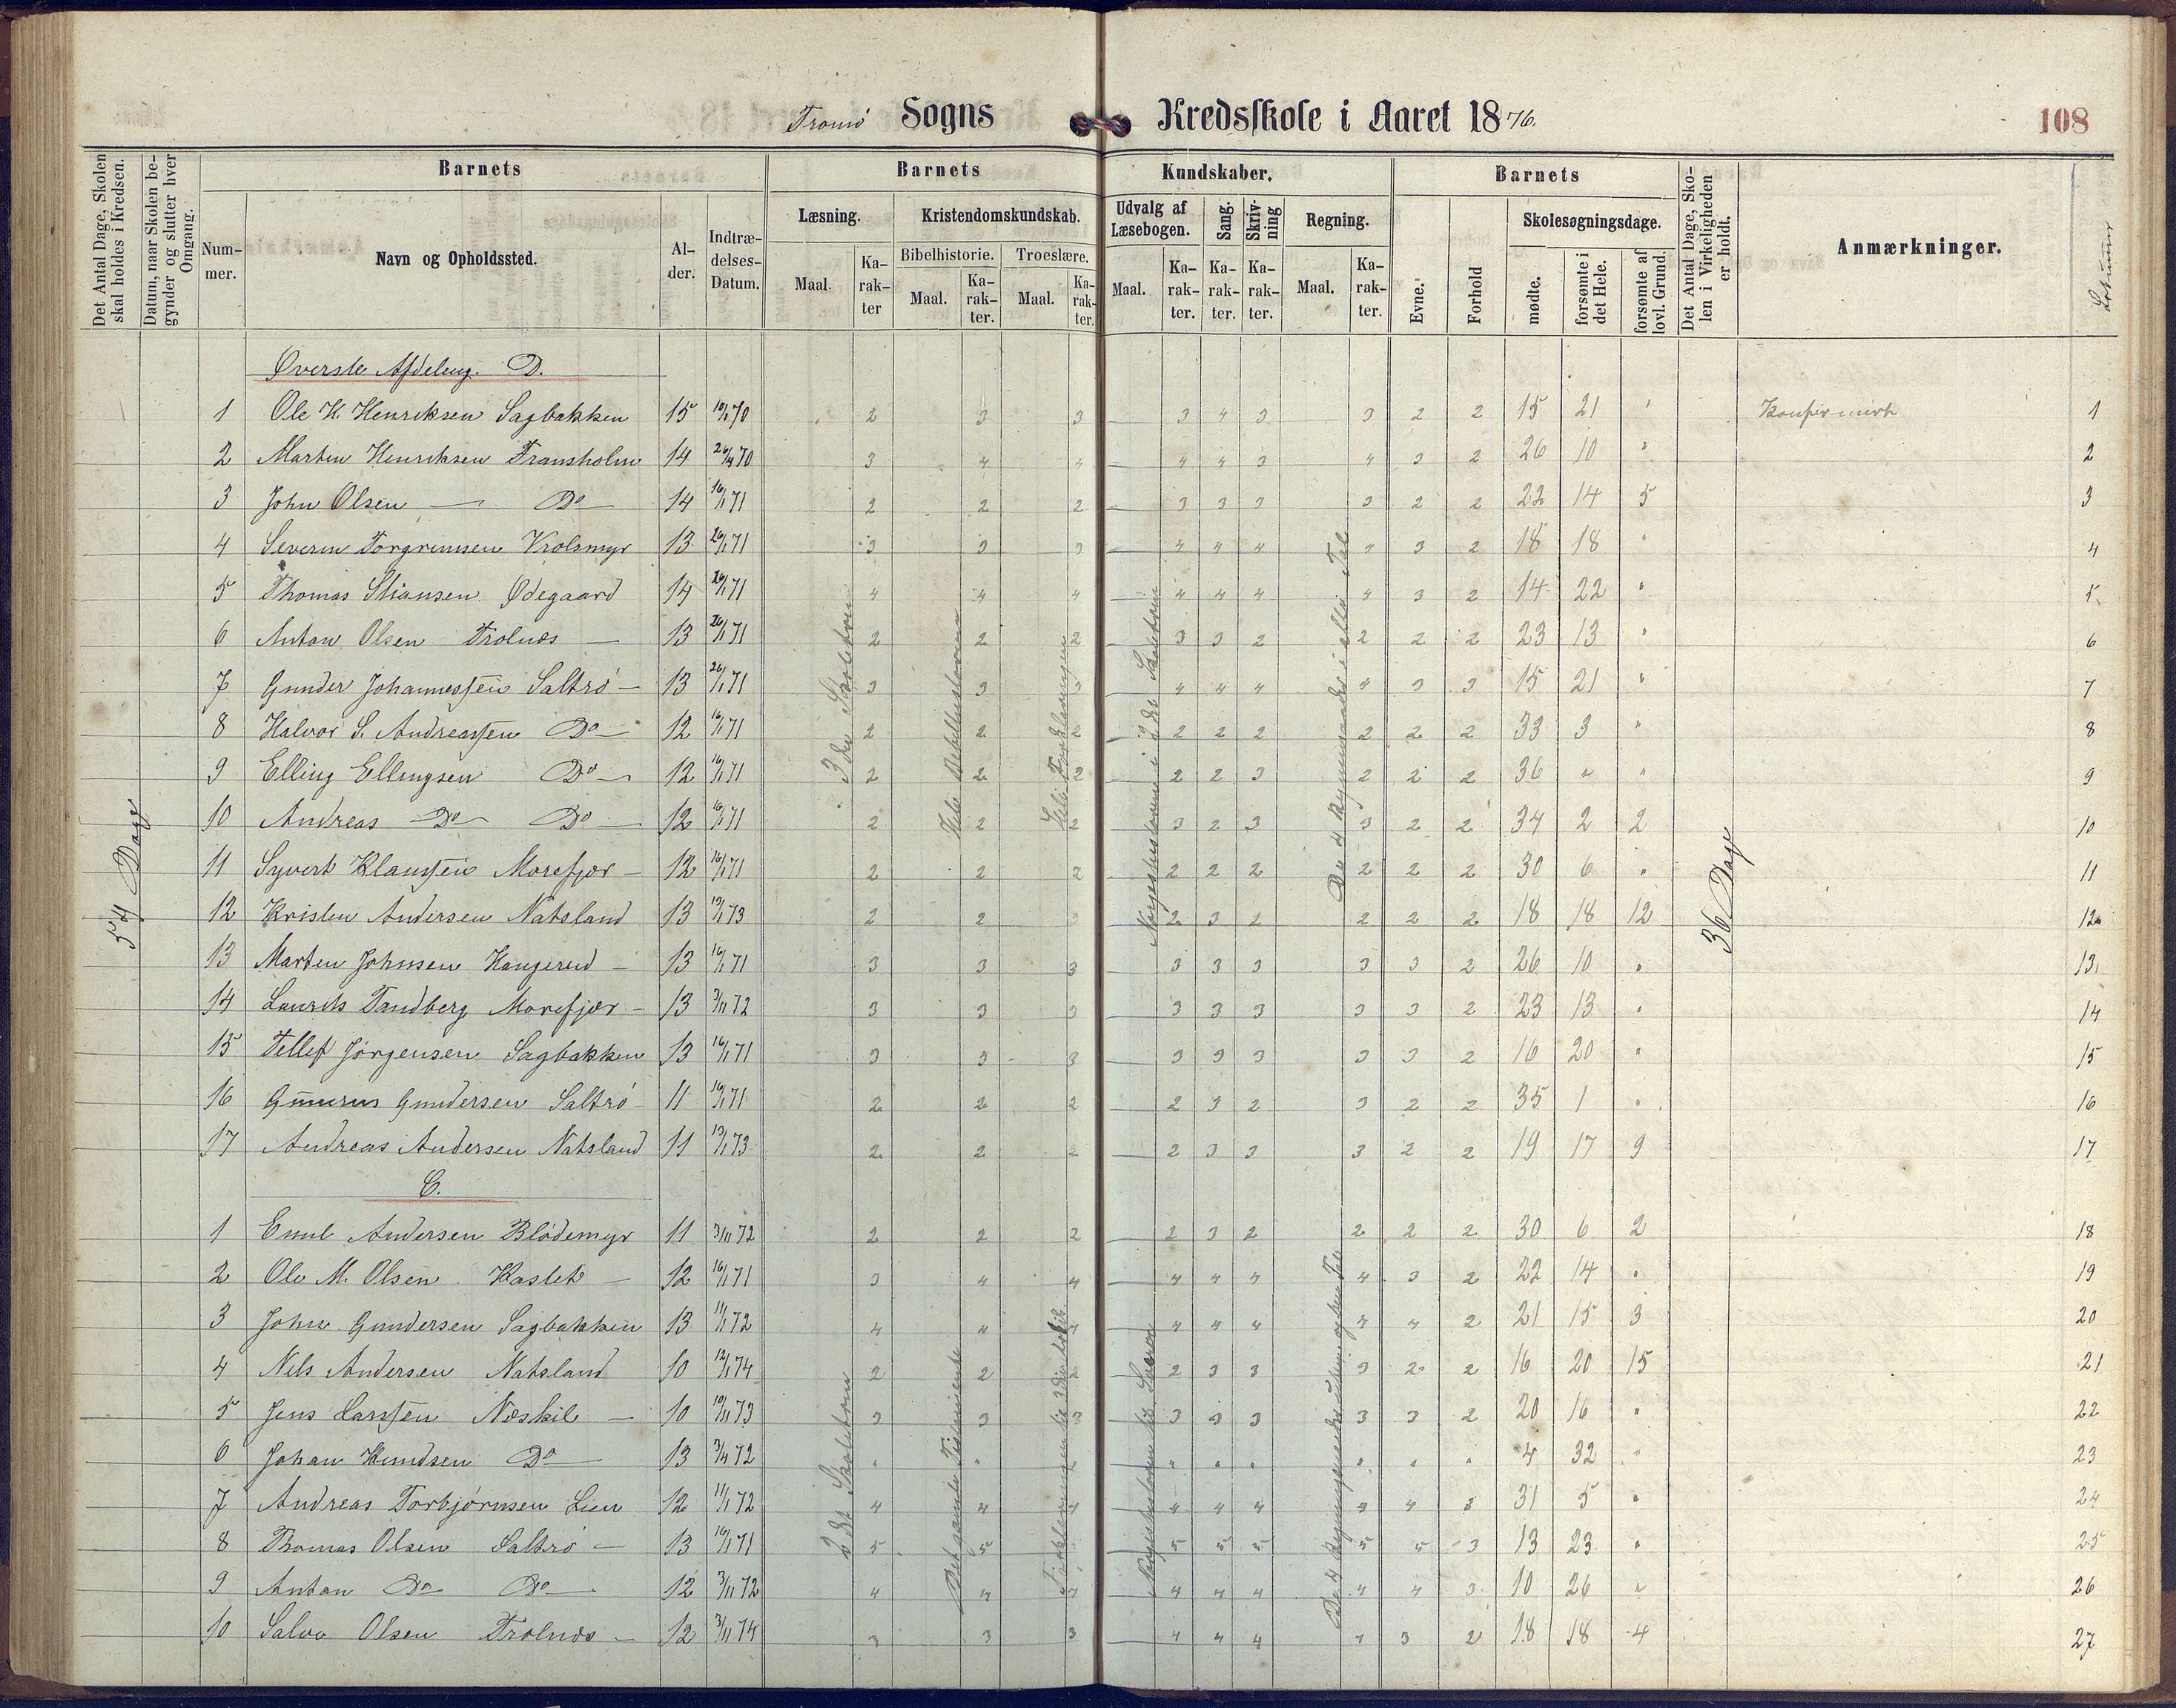 Tromø Sogns Kredsskole i Aaret 1876.
108
Det Antal Dage, Skolen skal holdes i Kredsen.
Datum, naar Skolen begynder og slutter hver Omgang.
Barnets
Nummer.
Navn og Opholdssted.
Alder.
Indtrædelses-Datum.
Barnets Kundskaber.
Læsning.
Maal.
Karakter
Kristendomskundskab.
Bibelhistorie.
Maal.
Karakter.
Troeslære.
Maal.
Karakter.
Udvalg af Læsebogen.
Maal.
Karakter.
Sang.
Karakter.
Skrivning
Karakter.
Regning.
Maal.
Karakter.
Barnets
Evne.
Forhold
Skolesøgningsdage.
mødte.
forsømte i det Hele.
forsømte af lovl. Grund.
Det Antal Dage, Skolen i Virkeligheden er holdt.
Anmærkninger.
54 Dage
36 Dage
Øverste Afdeling. D.
1 Ole H. Henriksen Sagbakken 15 10/1 70 2 3 3 3 4 3 3 2 2 15 21 " Konfirmirt 1
2 Martin Henriksen Fransholm 14 70 3 4 4 4 4 3 4 3 2 26 10 " 2
3 John Olsen — Do 14 16/1 71 2 2 2 3 3 3 3 2 2 22 14 5 3
4 Severin Torgrimsen Krolsmyr 13 26/1 71 3 3 3 4 4 4 4 3 2 18 18 " 4
5 Thomas Stiansen Ødegaard 14 26/1 71 4 4 4 4 4 4 4 3 2 14 22 " 5
6 Anton Olsen Trolnæs — 13 26/1 71 2 2 2 3 3 2 2 2 2 23 13 " 6
7 Gunder Johannessen Saltrø — 13 26/1 71 3 3 3 4 4 4 4 3 3 15 21 " 7
8 Halvor S. Andreassen Do — 12 16/1 71 2 2 2 2 2 2 2 2 2 33 3 " 8
9 Elling Ellingsen Do — 12 16/1 71 2 2 2 2 2 3 2 2 2 36 " " 9
10 Andreas Do Do — 12 16/1 71 2 2 2 3 2 3 3 2 2 34 2 2 10
11 Syvert Klaussen Morefjær — 12 16/1 71 2 2 2 2 2 2 2 2 2 30 6 " 11
12 Kristen Andersen Natsland 13 13/1 73 2 2 3 2 3 2 2 2 2 18 18 12 12
13 Marten Johnsen Hangerud — 13 16/1 71 3 3 3 3 3 3 3 3 2 26 10 " 13
14 Laurits Tandberg Morefjær — 13 3/11 72 3 3 3 3 3 3 3 3 2 23 13 " 14
15 Tellef Jørgensen Sagbakken 13 16/1 71 3 3 3 3 3 3 3 3 2 16 20 " 15
16 Gundersen Saltrø 11 16/1 71 2 2 2 2 3 2 3 2 2 35 1 " 16
17 Andreas Andersen Natsland 11 13/1 73 2 2 2 2 3 3 3 2 2 19 17 9 17
C.
1 Emil Andersen Blødemyr 11 3/11 72 2 2 2 2 3 2 2 2 2 30 6 2 18
2 Ole M. Olsen Kastet — 12 16/1 71 3 4 4 4 4 4 4 3 2 22 14 " 19
3 John Gundersen Sagbakken 13 11/1 72 4 4 4 4 4 4 4 4 2 21 15 3 20
4 Nels Andersen Natsland 10 12/1 74 2 2 2 2 3 3 3 2 2 16 20 15 21
5 Jens Larssen Næskil — 10 10/11 73 3 3 3 3 3 3 3 3 2 20 16 " 22
6 Johan Knudsen Do — 13 3/4 72 " " " " " " " " " 4 32 " 23
7 Andreas Torbjørnsen Lien 12 11/1 72 4 4 4 4 4 4 3 4 3 31 5 " 24
8 Thomas Olsen Saltrø — 13 16/1 71 5 5 5 5 5 5 5 3 13 23 " 25
9 Anton Do Do — 12 3/11 72 4 4 4 4 4 4 4 4 3 10 26 " 26
10 Salve Olsen Trolnæs — 12 3/11 74 3 3 3 4 4 4 4 3 2 18 18 4 27
3die Skoletrin
Hele Bibelhistorien
Hele Forklaringen
Norgeshistorien i 2det Skoletrin
De 4 Regningsarter i hele Tal
2det Skoletrin
Det gamle Testamente
Forklaringen til